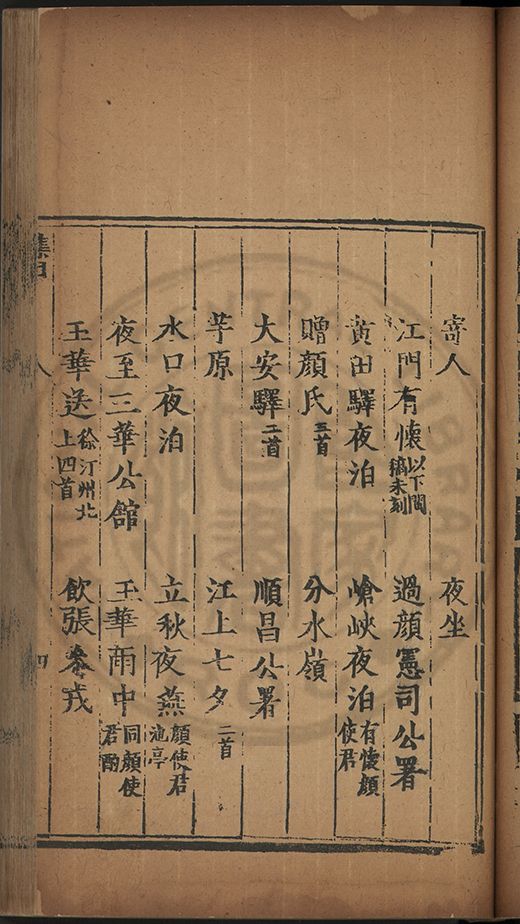 寄人 夜坐
江門有懷以下閩稿未刻 過顔憲司公署
黄田驛夜泊 嵢峽夜泊有懐顔使君
贈顔氏三首 分水嶺
大安驛二首 順昌公署
芋原 江上七夕二首
水口夜泊 立秋夜燕顔使君池亭
夜至三華公館 玉華雨中同顔使君酌
玉華送徐汀州北上四首 飲張叅戎
集目 八 四